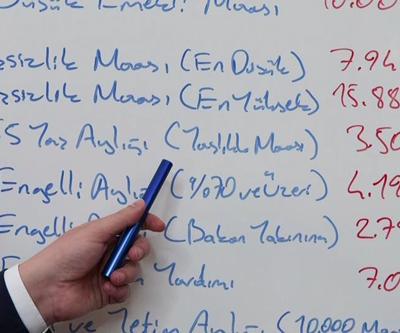 Düşük Emekli Maaşı 10.00
şsizlik Maaşı (En Düşük) 7.94
şsizlik Maaşı (En Yüksek) 15.88
65 Yaş Aylığı (Yaşlılık Maaşı) 3.50
Engelli Aylığı (%70 ve Üzeri) 4.19
Engelli (Bakan Yakınına) 2.79
Yardımı 7.0
ve Yetim Aylığı (10.000 Maa